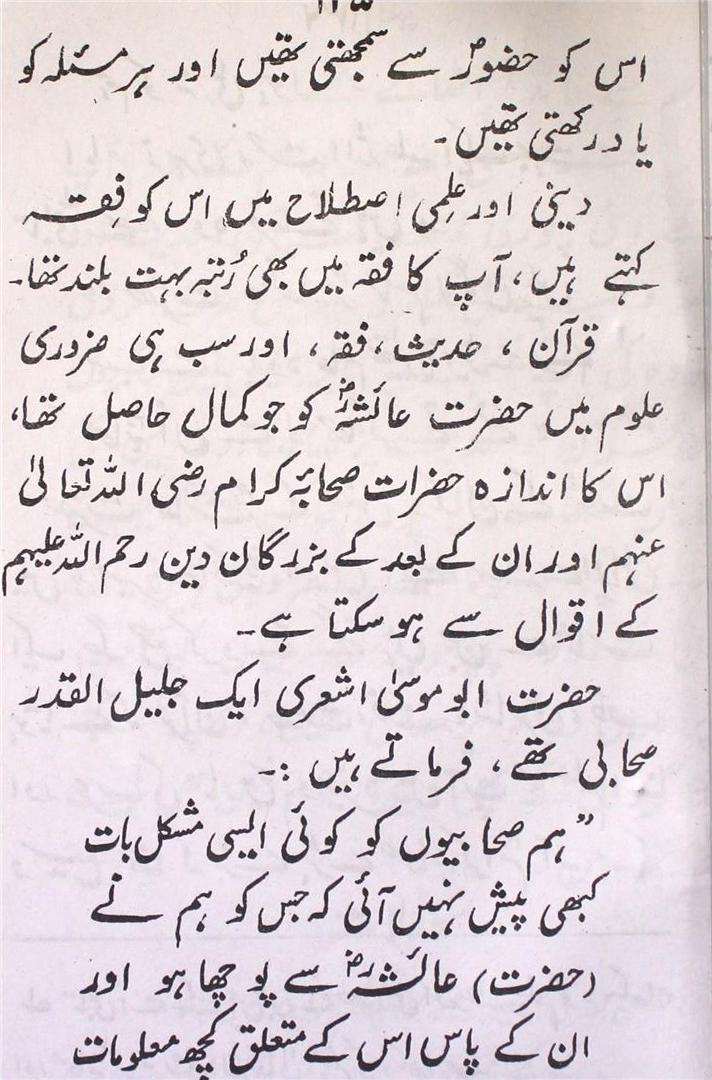 اس کو حضورؐ سے سمجھتی تھیں اور ہر مسئلہ کو
یاد رکھتی تھیں۔
دینی اور علمی اصطلاح میں اس کو فِقہ
کہتے ہیں، آپ کا فقہ میں بھی رُتبہ بہت بلند تھا۔
قرآن ، حدیث ، فقہ ، اور سب ہی ضروری
علوم میں حضرت عائشہؓ کو جو کمال حاصل تھا،
اس کا اندازہ حضرات صحابۂ کرام رضی اللہ تعالیٰ
عنہم اور ان کے بعد کے بزرگان دین رحم اللہ علیہم
کے اقوال سے ہو سکتا ہے۔
حضرت ابو موسیٰ اشعری ایک جلیل القدر
صحابی تھے ، فرماتے ہیں :۔
”ہم صحابیوں کو کوئی ایسی مشکل بات
کبھی پیش نہیں آئی کہ جس کو ہم نے
(حضرت) عائشہؓ سے پوچھا ہو اور
ان کے پاس اس کے متعلق کچھ معلومات